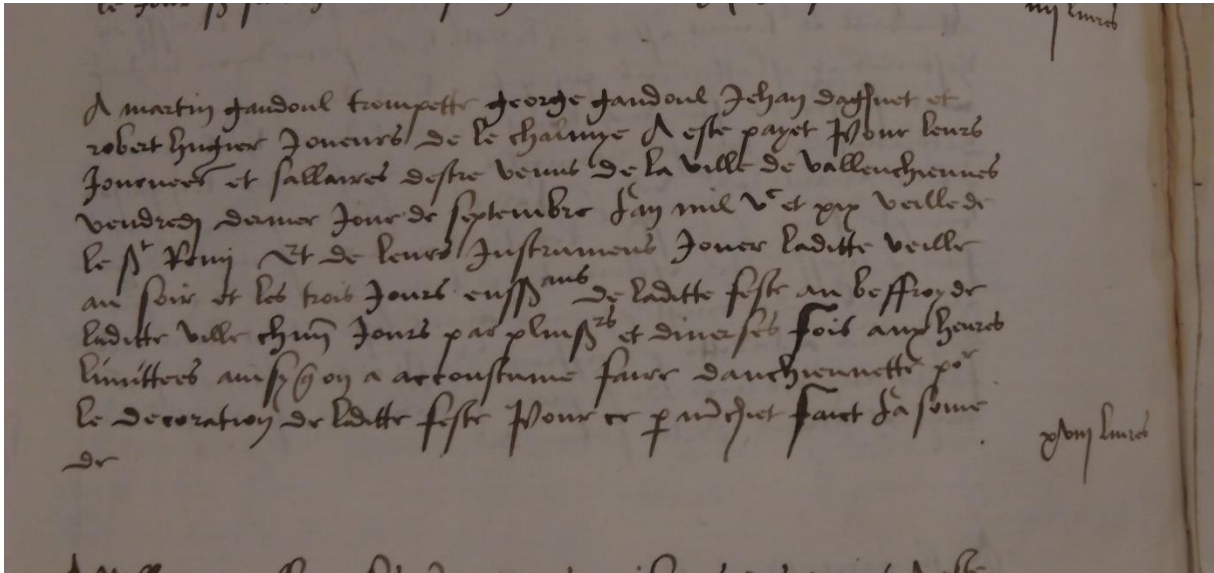 iiij livres
A martin gandoul trompette george gandoul Jehan dagnet et
robert hugier Joueurs de le chalmye A este payet Pour leurs
Journees et sallaires destre venus de la ville de vallenchiennes
vendredj dernier Jour de septembre lan mil vc et xix veille de
le st Remj Et de leurs Instrumens Jouer laditte veille
au soir et les trois Jours enssans de laditte feste au beffroy de
laditte ville chascun Jours par pluissrs et diverses fois aux heures
limittees ainsy qon a accoustume faire danchiennette por
le decoration de laditte feste Pour ce p mchiet faict la some
de
xviij livres